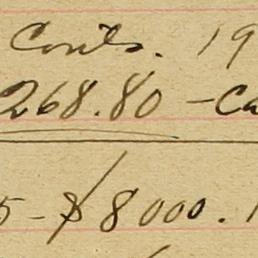 Conts. 19
268.80 - Ca
5 - $8000.